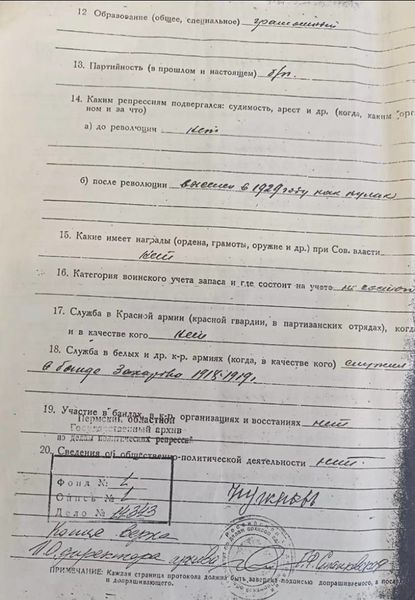 12 Образование (общее, специальное) грамотный
13. Партийность (в прошлом и настоящем) б/п.
14. Каким репрессиям подвергался: судимость, арест и др. (когда, каким орг
ном и за что)
а) до революции нет
б) после революции выслан в 1929 году как кулак
15. Какие имеет награды (ордена, грамоты, оружие и др.) при Сов. власти
нет
16. Категория воинского учета запаса и где состоит на учете не состоит
17. Служба в Красной армии (красной гвардии, в партизанских отрядах), когд
и в качестве кого нет
18. Служба в белых и др. к-р. армиях (когда, в качестве кого) служил
в банде Захарова 1918-1919г.
19. Участие в бандах, в к-р. организациях и восстаниях нет
Пермский областной
Государственный архив
по делам политических репрессий
20. Сведения об общественно-политической деятельности нет.
Фонд № 1
Опись № 1
Дело №
Копия верна
И.О. директора архива
ПРИМЕЧАНИЕ: Каждая страница протокола должна быть заверена подписью допрашиваемого, а посл
и допрашивающего.